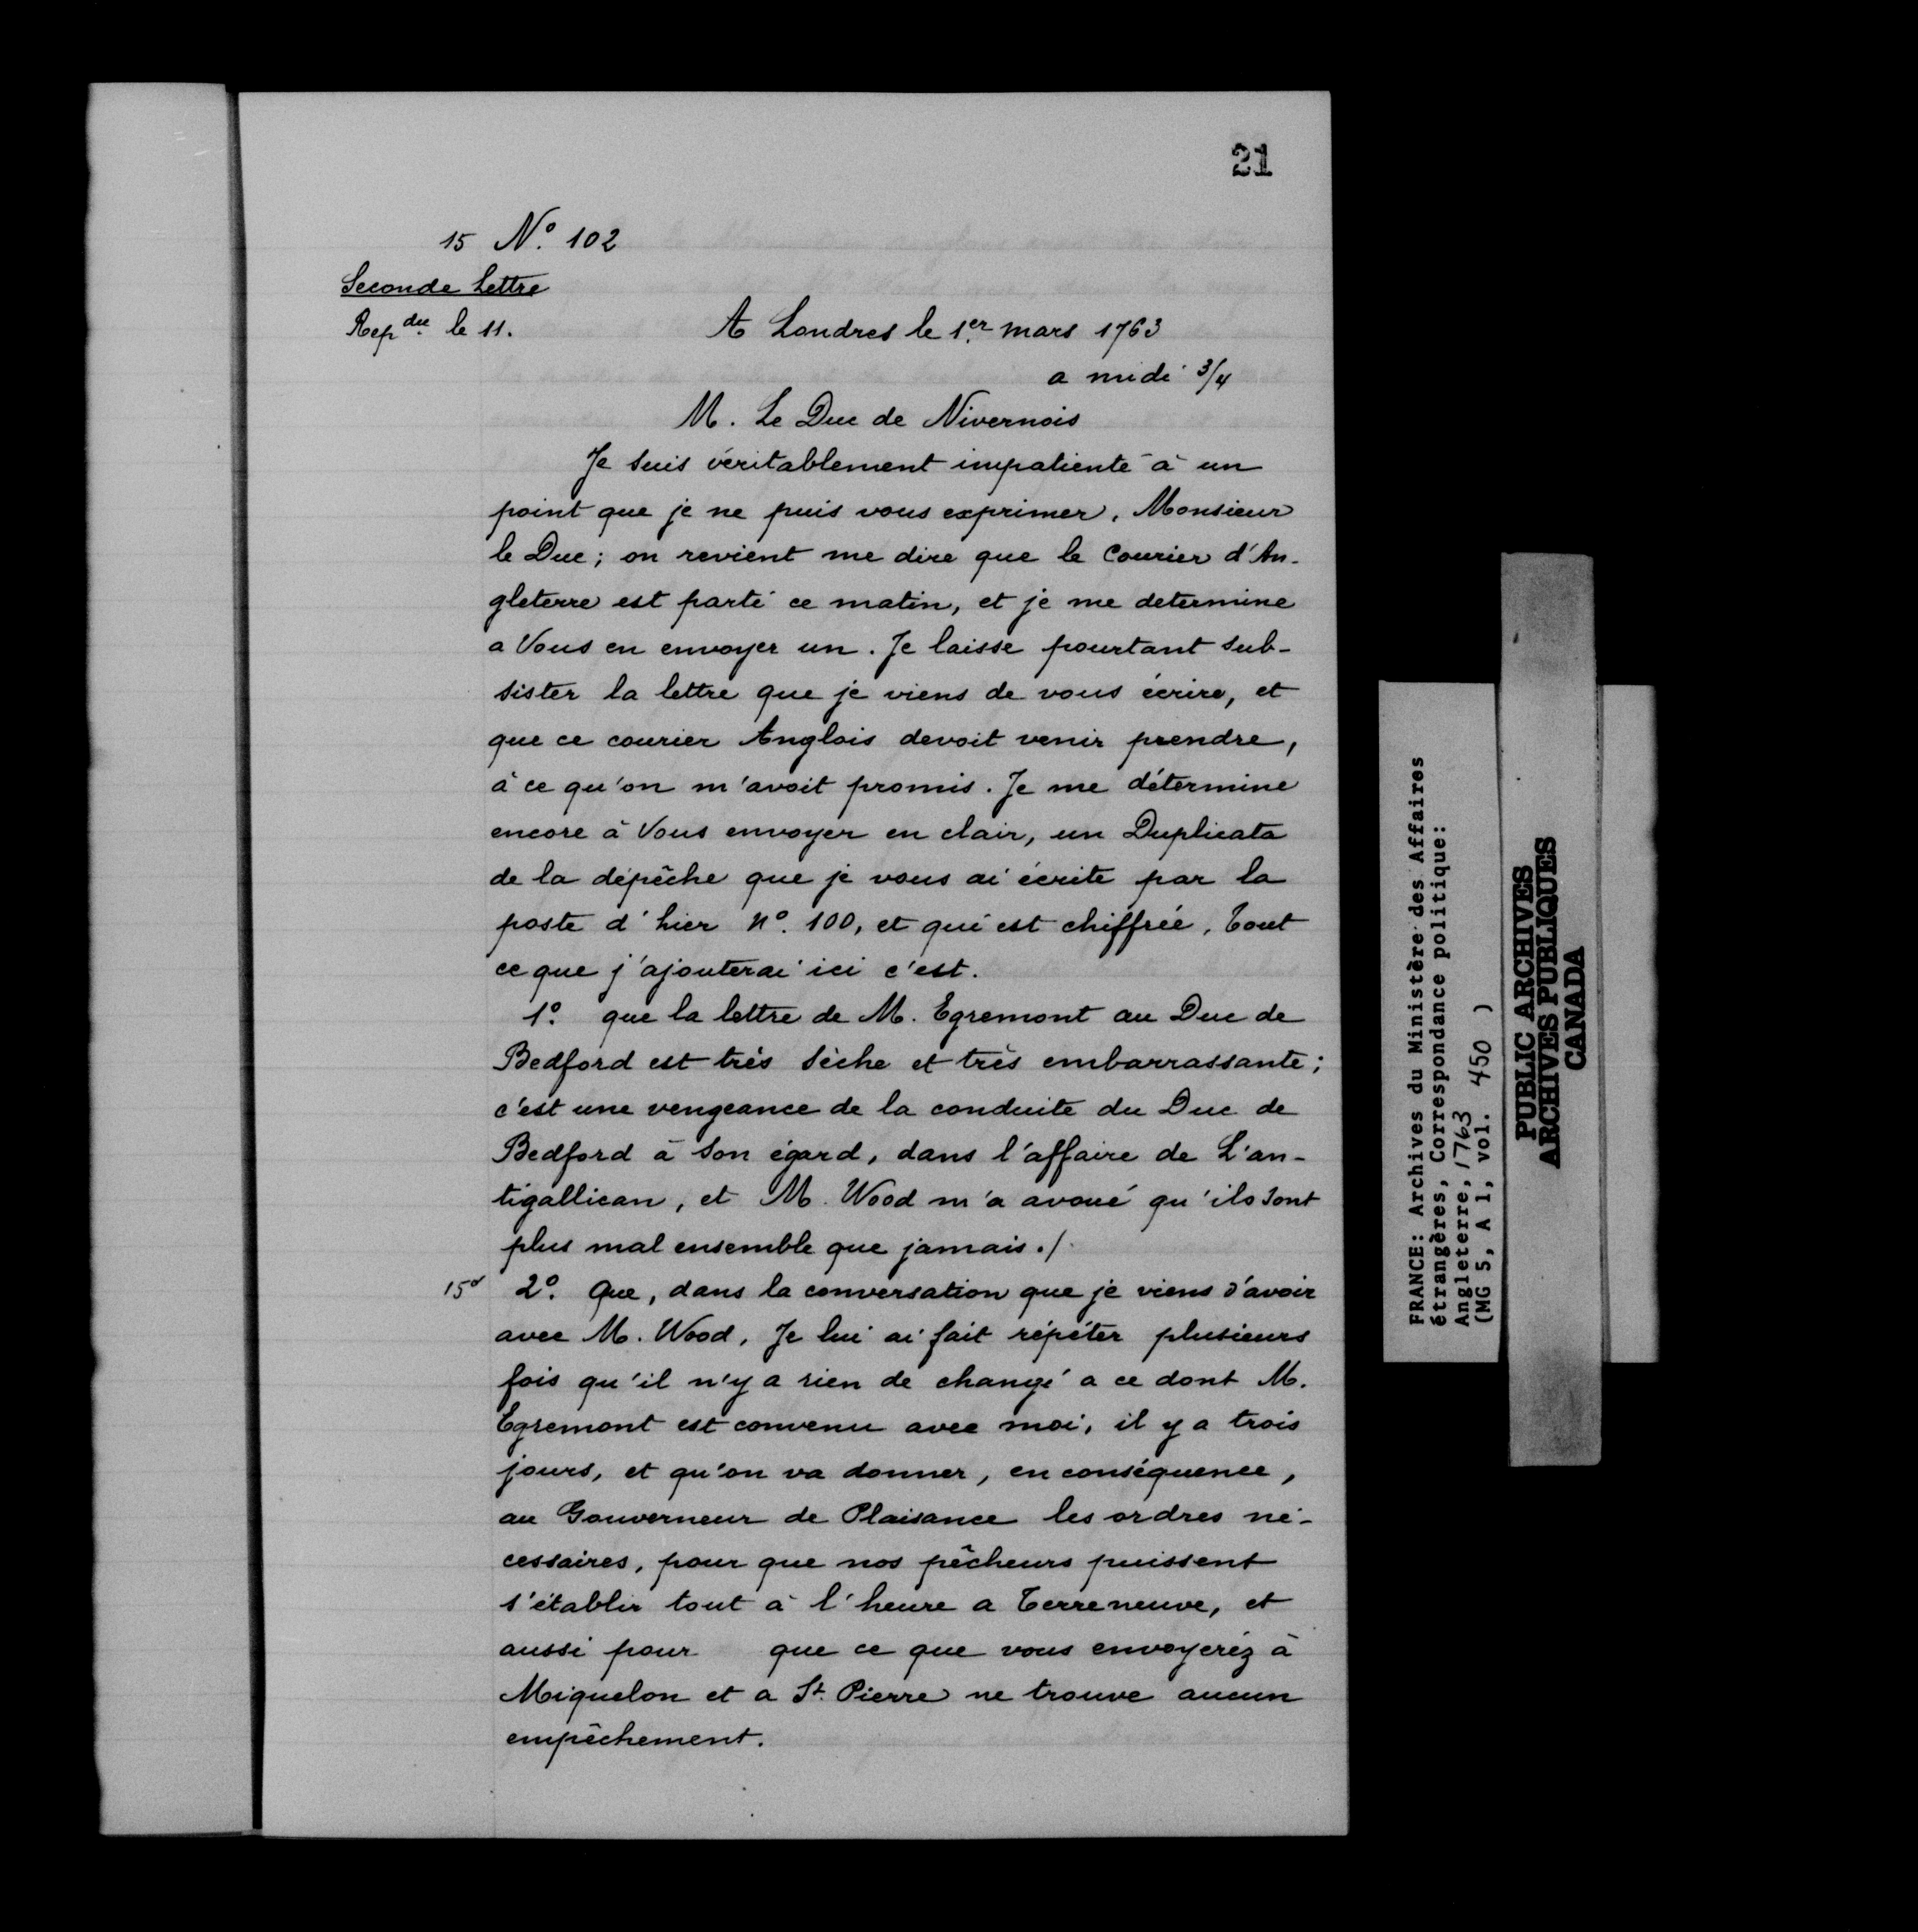 21
15 N.º 102
Seconde Lettre
Rep due le 11.
A Londres le 1.er mars 1763
a midi 3/4
M. Le Duc de Nivernois
Je suis véritablement impatienté à un
point que je ne puis vous exprimer, Monsieur
le Duc; on revient me dire que le Courier d'An-
gleterre est parti ce matin, et je me determine
a Vous en envoyer un. Je laisse pourtant sub-
sister la lettre que je viens de vous écrire, et
que ce courier Anglois devoit venir prendre,
à ce qu'on m'avoit promis. Je me détermine
encore à Vous envoyer en clair, un Duplicata
de la dépêche que je vous ai écrite par la
poste d'hier nº. 100, et qui est chiffrée. Tout
ce que j'ajouterai ici c'est.
1º. que la lettre de M. Egremont au Duc de
Bedford est très sèche et très embarrassante;
c'est une vengeance de la conduite du Duc de
Bedford à son égard, dans l'affaire de L'an-
tigallican, et M. Wood m'a avoué qu'ils sont
plus mal ensemble que jamais./.
15º 2º. Que, dans la conversation que je viens d'avoir
avec M. Wood, Je lui ai fait répéter plusieurs
fois qu'il n'y a rien de changé a ce dont M.
Egremont est convenu avec moi, il y a trois
jours, et qu'on va donner, en conséquence,
au Gouverneur de Plaisance les ordres né-
cessaires, pour que nos pêcheurs puissent
s'établir tout à l'heure a Terreneuve, et
aussi pour que ce que vous envoyeréz à
Miquelon et a St. Pierre ne trouve aucun
empêchement.
FRANCE: Archives du Ministère des Affaires
étrangères, Correspondance politique:
Angleterre, 1763
(MG 5, A 1, vol. 450 )
PUBLIC ARCHIVES
ARCHIVES PUBLIQUES
CANADA